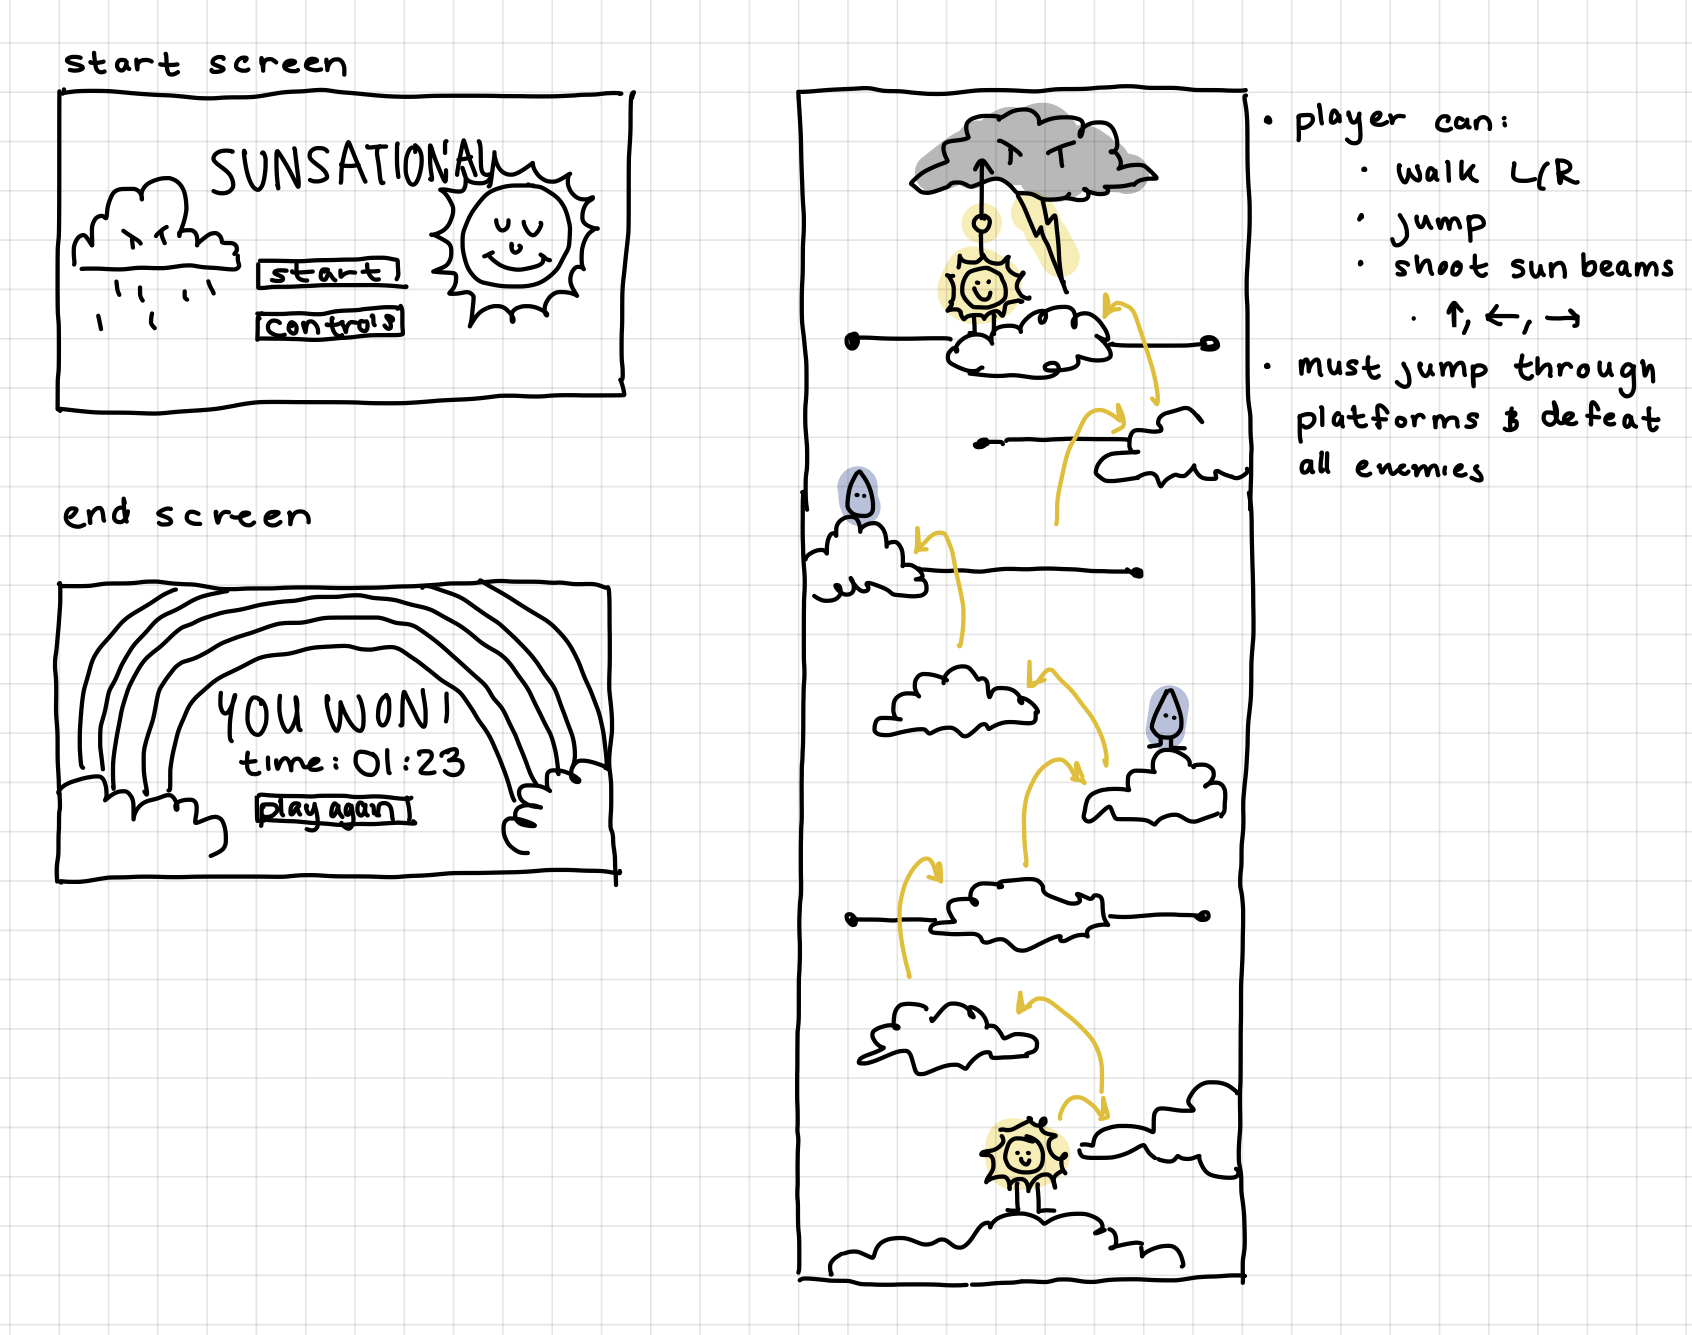 start screen
SUNSATIONAL
start
controls
end screen
YOU WON!
time: 01:23
play again
• player can:
• walk L/R
• jump
• shoot sun beams
• ↑, ←, →
• must jump through
platforms & defeat
all enemies